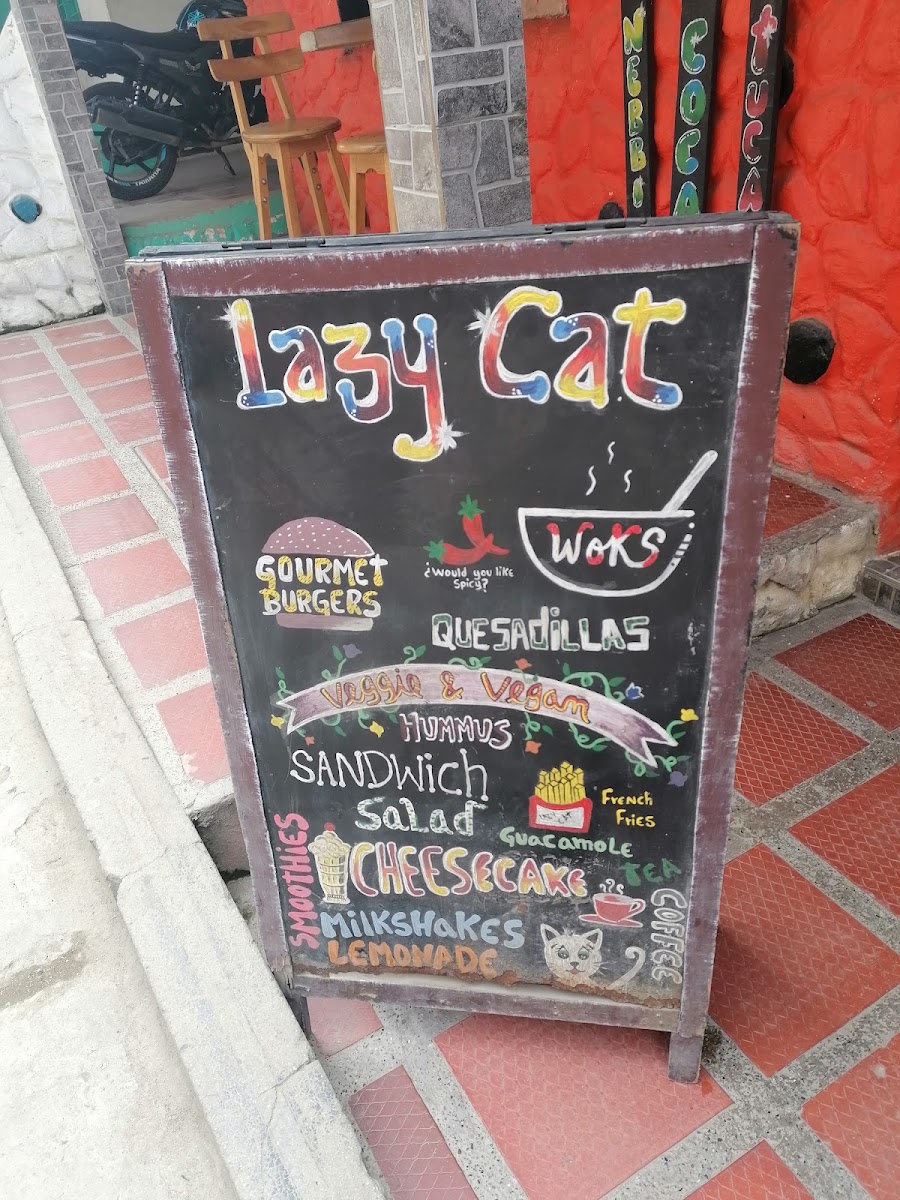 NEBBI
COCA
tUCA
Lazy Cat
GOURMEt
BURGERS
¿Would you like
Spicy?
WoKS
QUESAdiLLAS
Veggie & Vegan
HUMMUS
SANDWich
SaLad
FRENCH
FRiES
GUaCaMoLE
TEA
SMOOTHiES
CHEESECAKE
COFFEE
MiLKSHaKES
LEMONADE